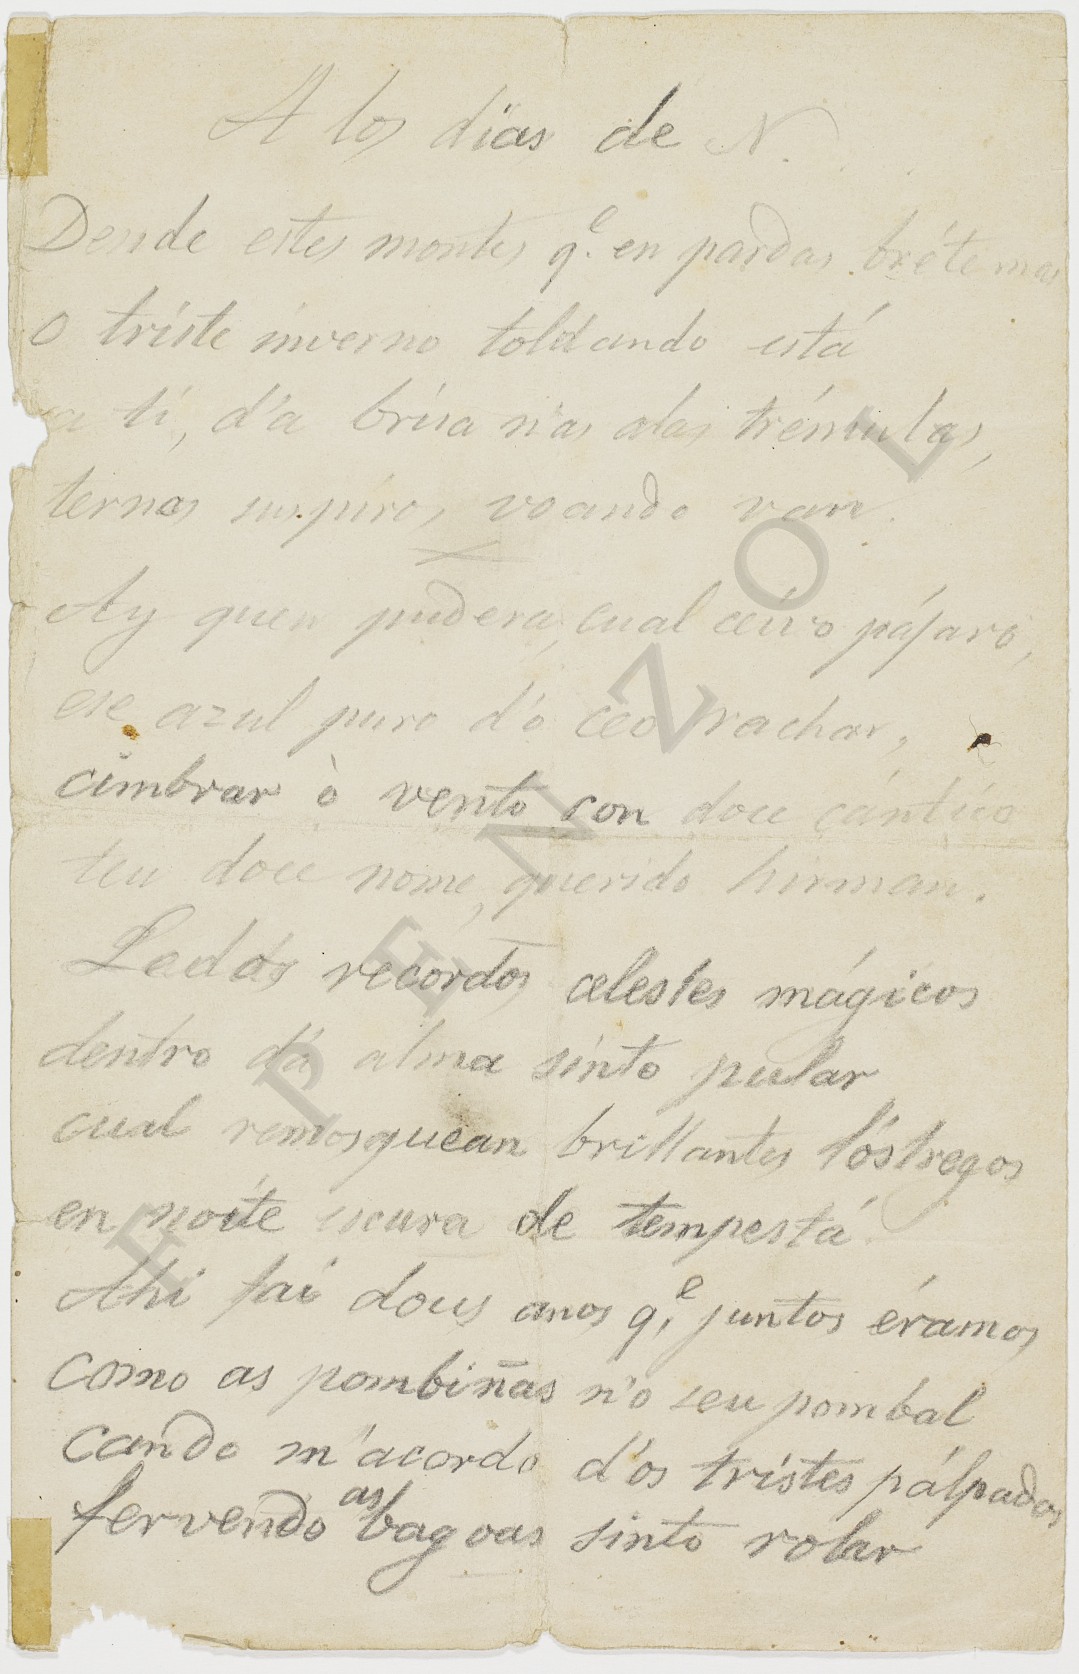 A los días de N.
Dende estes montes q.e en pardas brétemas
o triste inverno toldando está
a ti, d'a brisa n'as alas trémulas,
ternos suspiros, voando van.
Ay quen pudera, cual ceivo páfaro,
ese azul puro d'o ceo rachar,
cimbrar ò vento con doce cántico
teu doce nome, querido hirman.
Ledos recordos celestes mágicos
dentro d'a alma sinto pular
cual remosquean brillantes lóstregos
en noite escura de tempestá.
Ahi fai dous anos q.e juntos éramos
como as pombiñas n'o seu pombal
cando m'acordo d'os tristes pálpados
fervendo as bagoas sinto rolar
FPENZOL